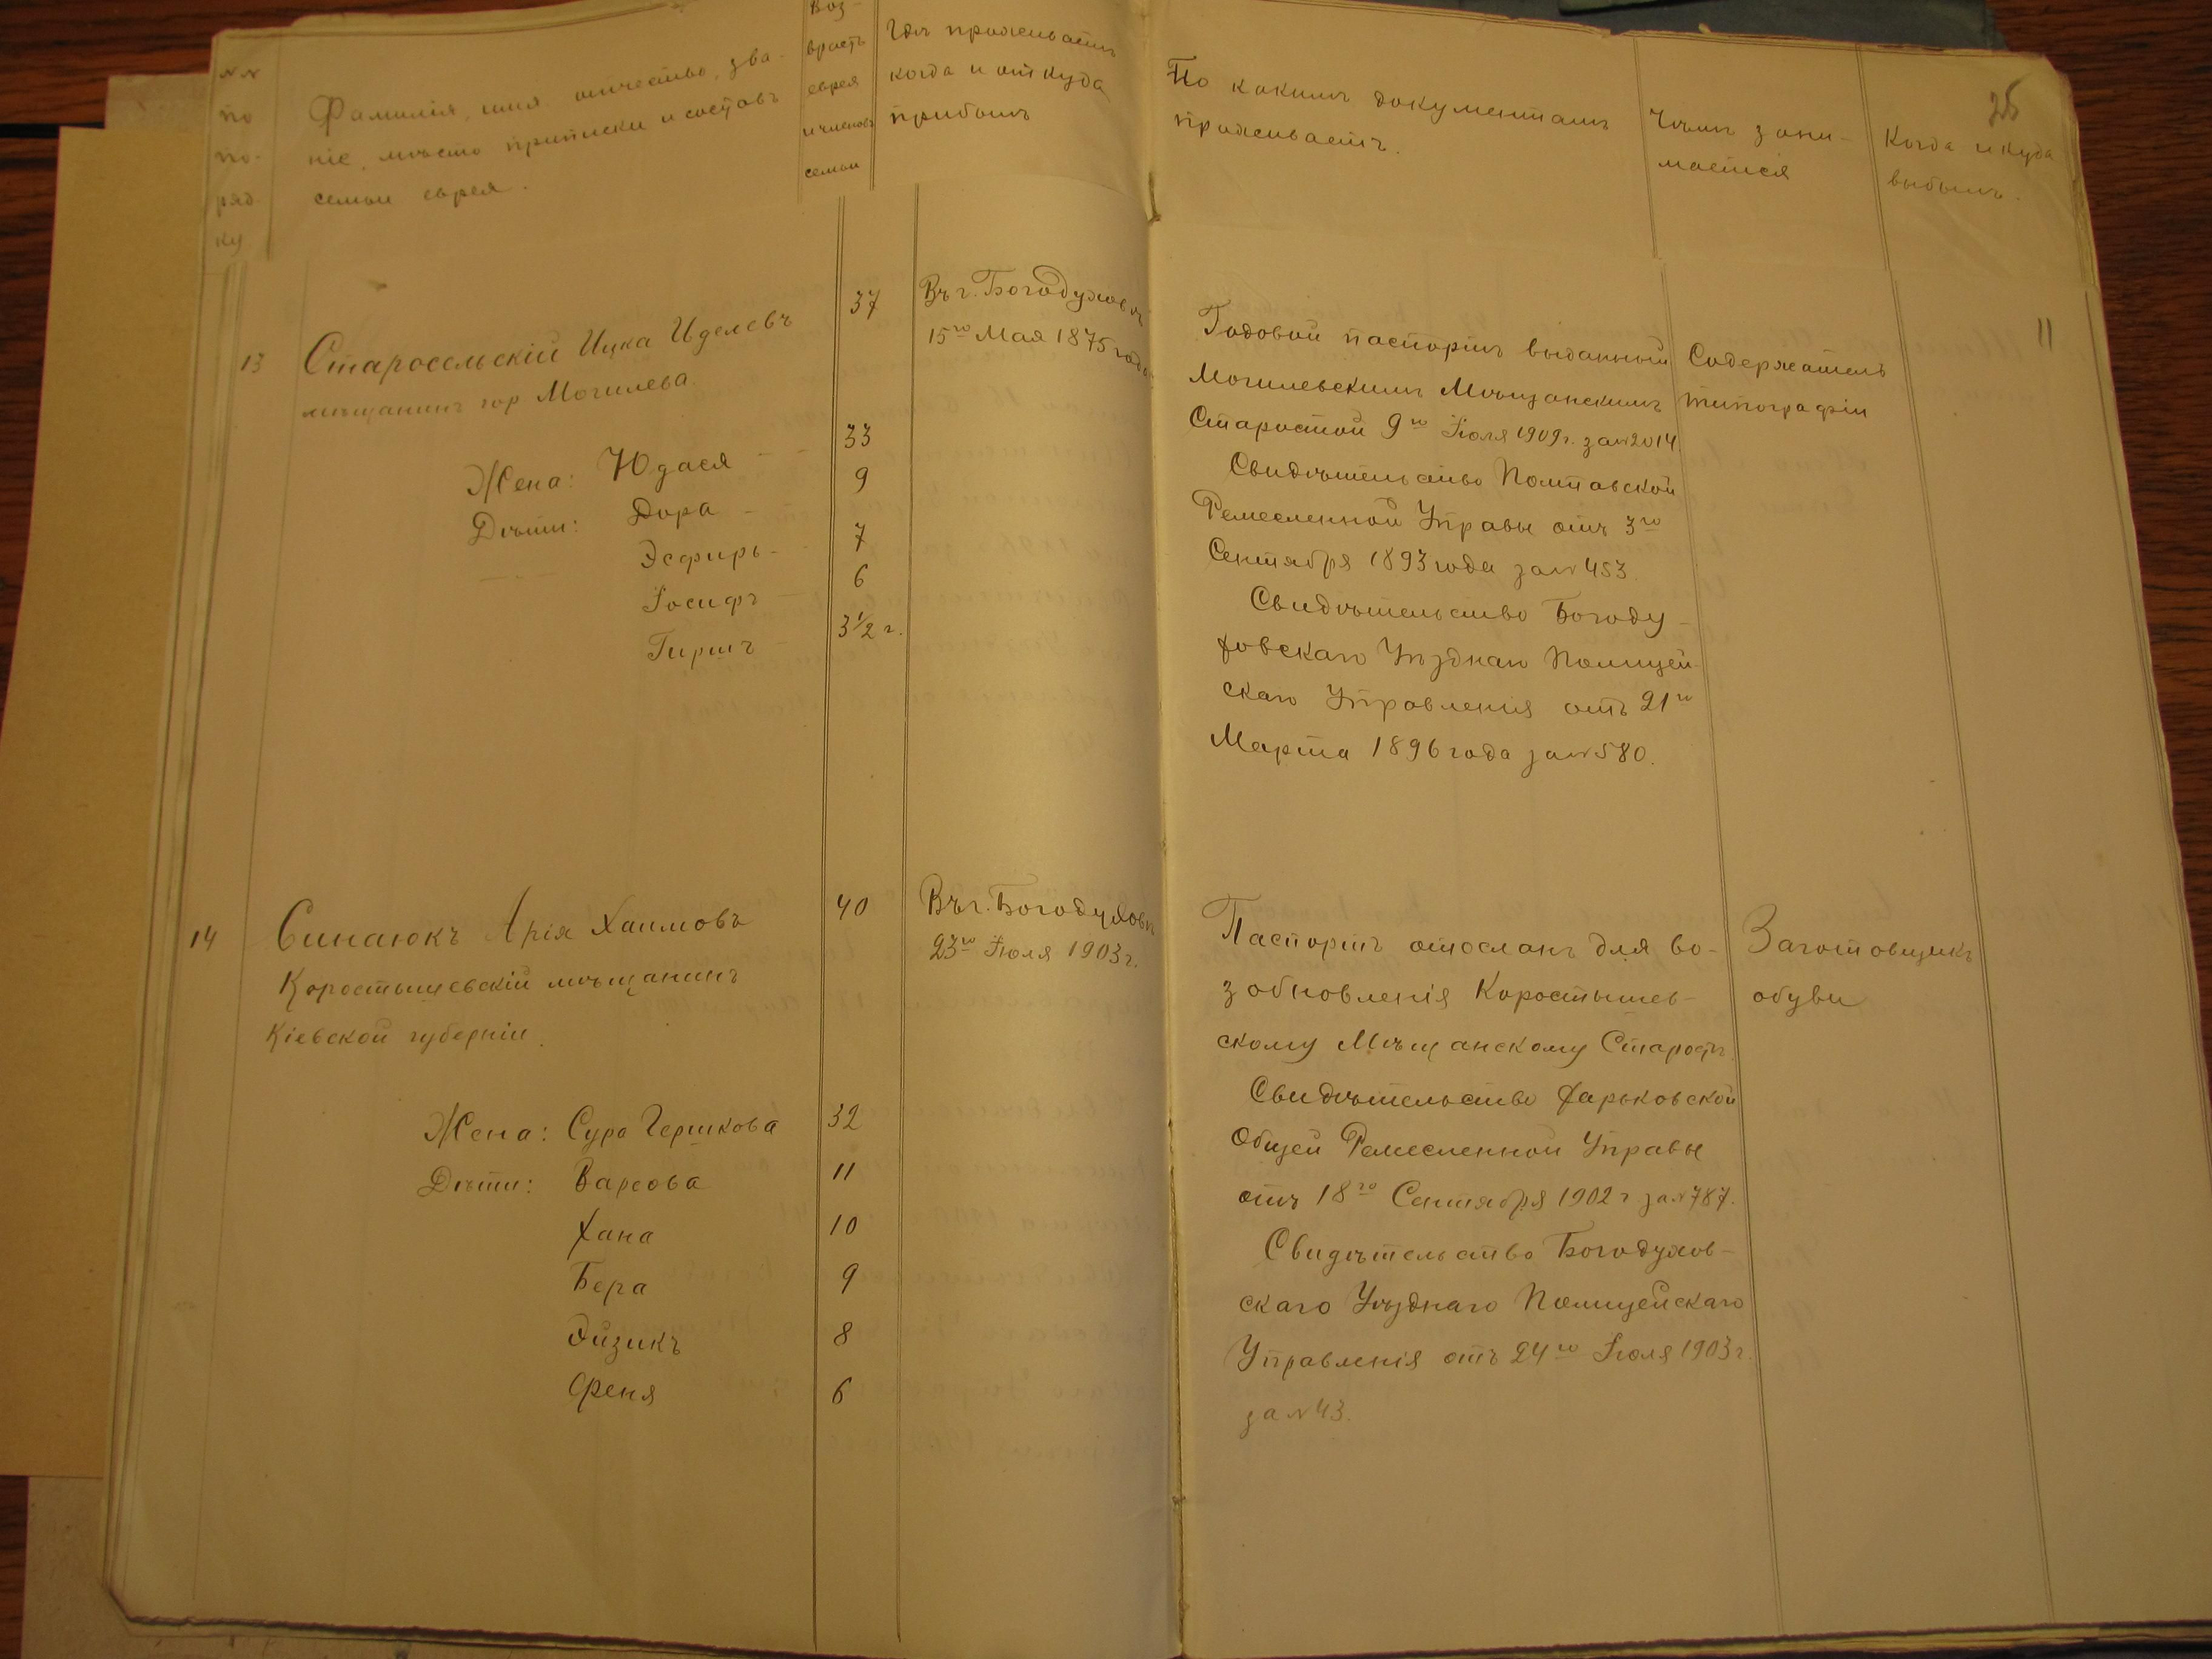 №№
по
по-
ряд-
ку
Фамилія, имя отчество, зва-
ніе, мѣсто приписки и составъ
семьи еврея.
Воз-
врастъ
еврея
и членовъ
семьи
Гдѣ проживаетъ
когда и откуда
прибылъ
По какимъ документамъ
проживаетъ.
Чѣмъ зани-
мается
Когда и куда
выбылъ.
26
11
13
Старосельскій Ицка Иделевъ
мѣщанинъ гор Могилева.
37
Въ г. Богодуховѣ
15го Мая 1875 года
Жена: Юдася - - 33
Дѣти: Дора - 9
Эсфирь - 7
Іосифъ - 6
Гиршъ - 3 1/2 г.
Годовой паспортъ выданный
Могилевскимъ Мѣщанскимъ
Старостой 9го Іюля 1909 г. за № 2014.
Свидѣтельство Полтавской
Ремесленной Управы отъ 3го
Сентября 1893 года за № 453.
Свидѣтельство Богоду-
ховскаго Уѣзднаго Полицей-
скаго Управленія отъ 21го
Марта 1896 года за № 580.
Содержатель
типографіи
14
Синаюкъ Арія Хаимовъ
Коростышевскій мѣщанинъ
Кіевской губерніи.
40
Въ г. Богодуховѣ
23го Іюля 1903 г.
Жена: Сура Гершкова 32
Дѣти: Варсова 11
Хана 10
Бера 9
Эйзикъ 8
Феня 6
Паспортъ отосланъ для во-
зобновленія Коростышев-
скому Мѣщанскому Старостѣ.
Свидѣтельство Харьковской
Общей Ремесленной Управы
отъ 18го Сентября 1902 г за № 787.
Свидѣтельство Богодухов-
скаго Уѣзднаго Полицейскаго
Управленія отъ 24го Іюля 1903 г.
за № 43.
Заготовщикъ
обуви